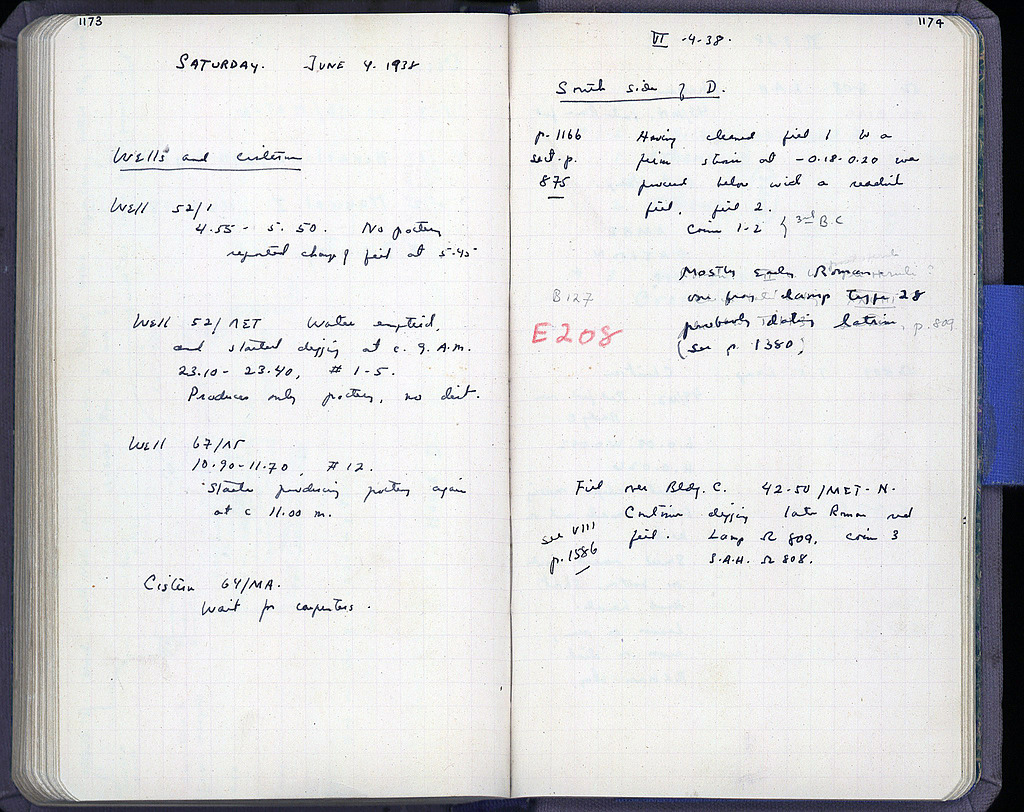 1173
SATURDAY. JUNE 4. 1938
Wells and cisterns
Well 52/1
4.55 - 5.50. No pottery
reported change of fill at 5.45
Well 52/ΛΣΤ Water emptied,
and started digging at c. 9. A.M.
23.10 - 23.40, # 1-5.
Produces only pottery, no dirt.
Well 67/ΛΓ
10.90-11.70, # 12.
Starts producing pottery again
at c 11.00 m.
Cistern 64/MA.
Wait for carpenters.
1174
VI -4-38.
South side of D.
p. 1166 Having cleaned fill 1 to a
sect. p. firm stratum at -0.18-0.20 we
875 proceed below with a reddish
fill, fill 2.
Coins 1-2 } 3rd B.C
Mostly Early Roman
B127 one frag. lamp type 28
E208 probably latrine, p. 809
(see p. 1380)
Fill over Bldg. C. 42-50/ΜΣΤ-Ν.
Continue digging late Roman red
see VIII fill. Lamp Ω 809, coin 3
p. 1586 S.A.H. Ω 808.